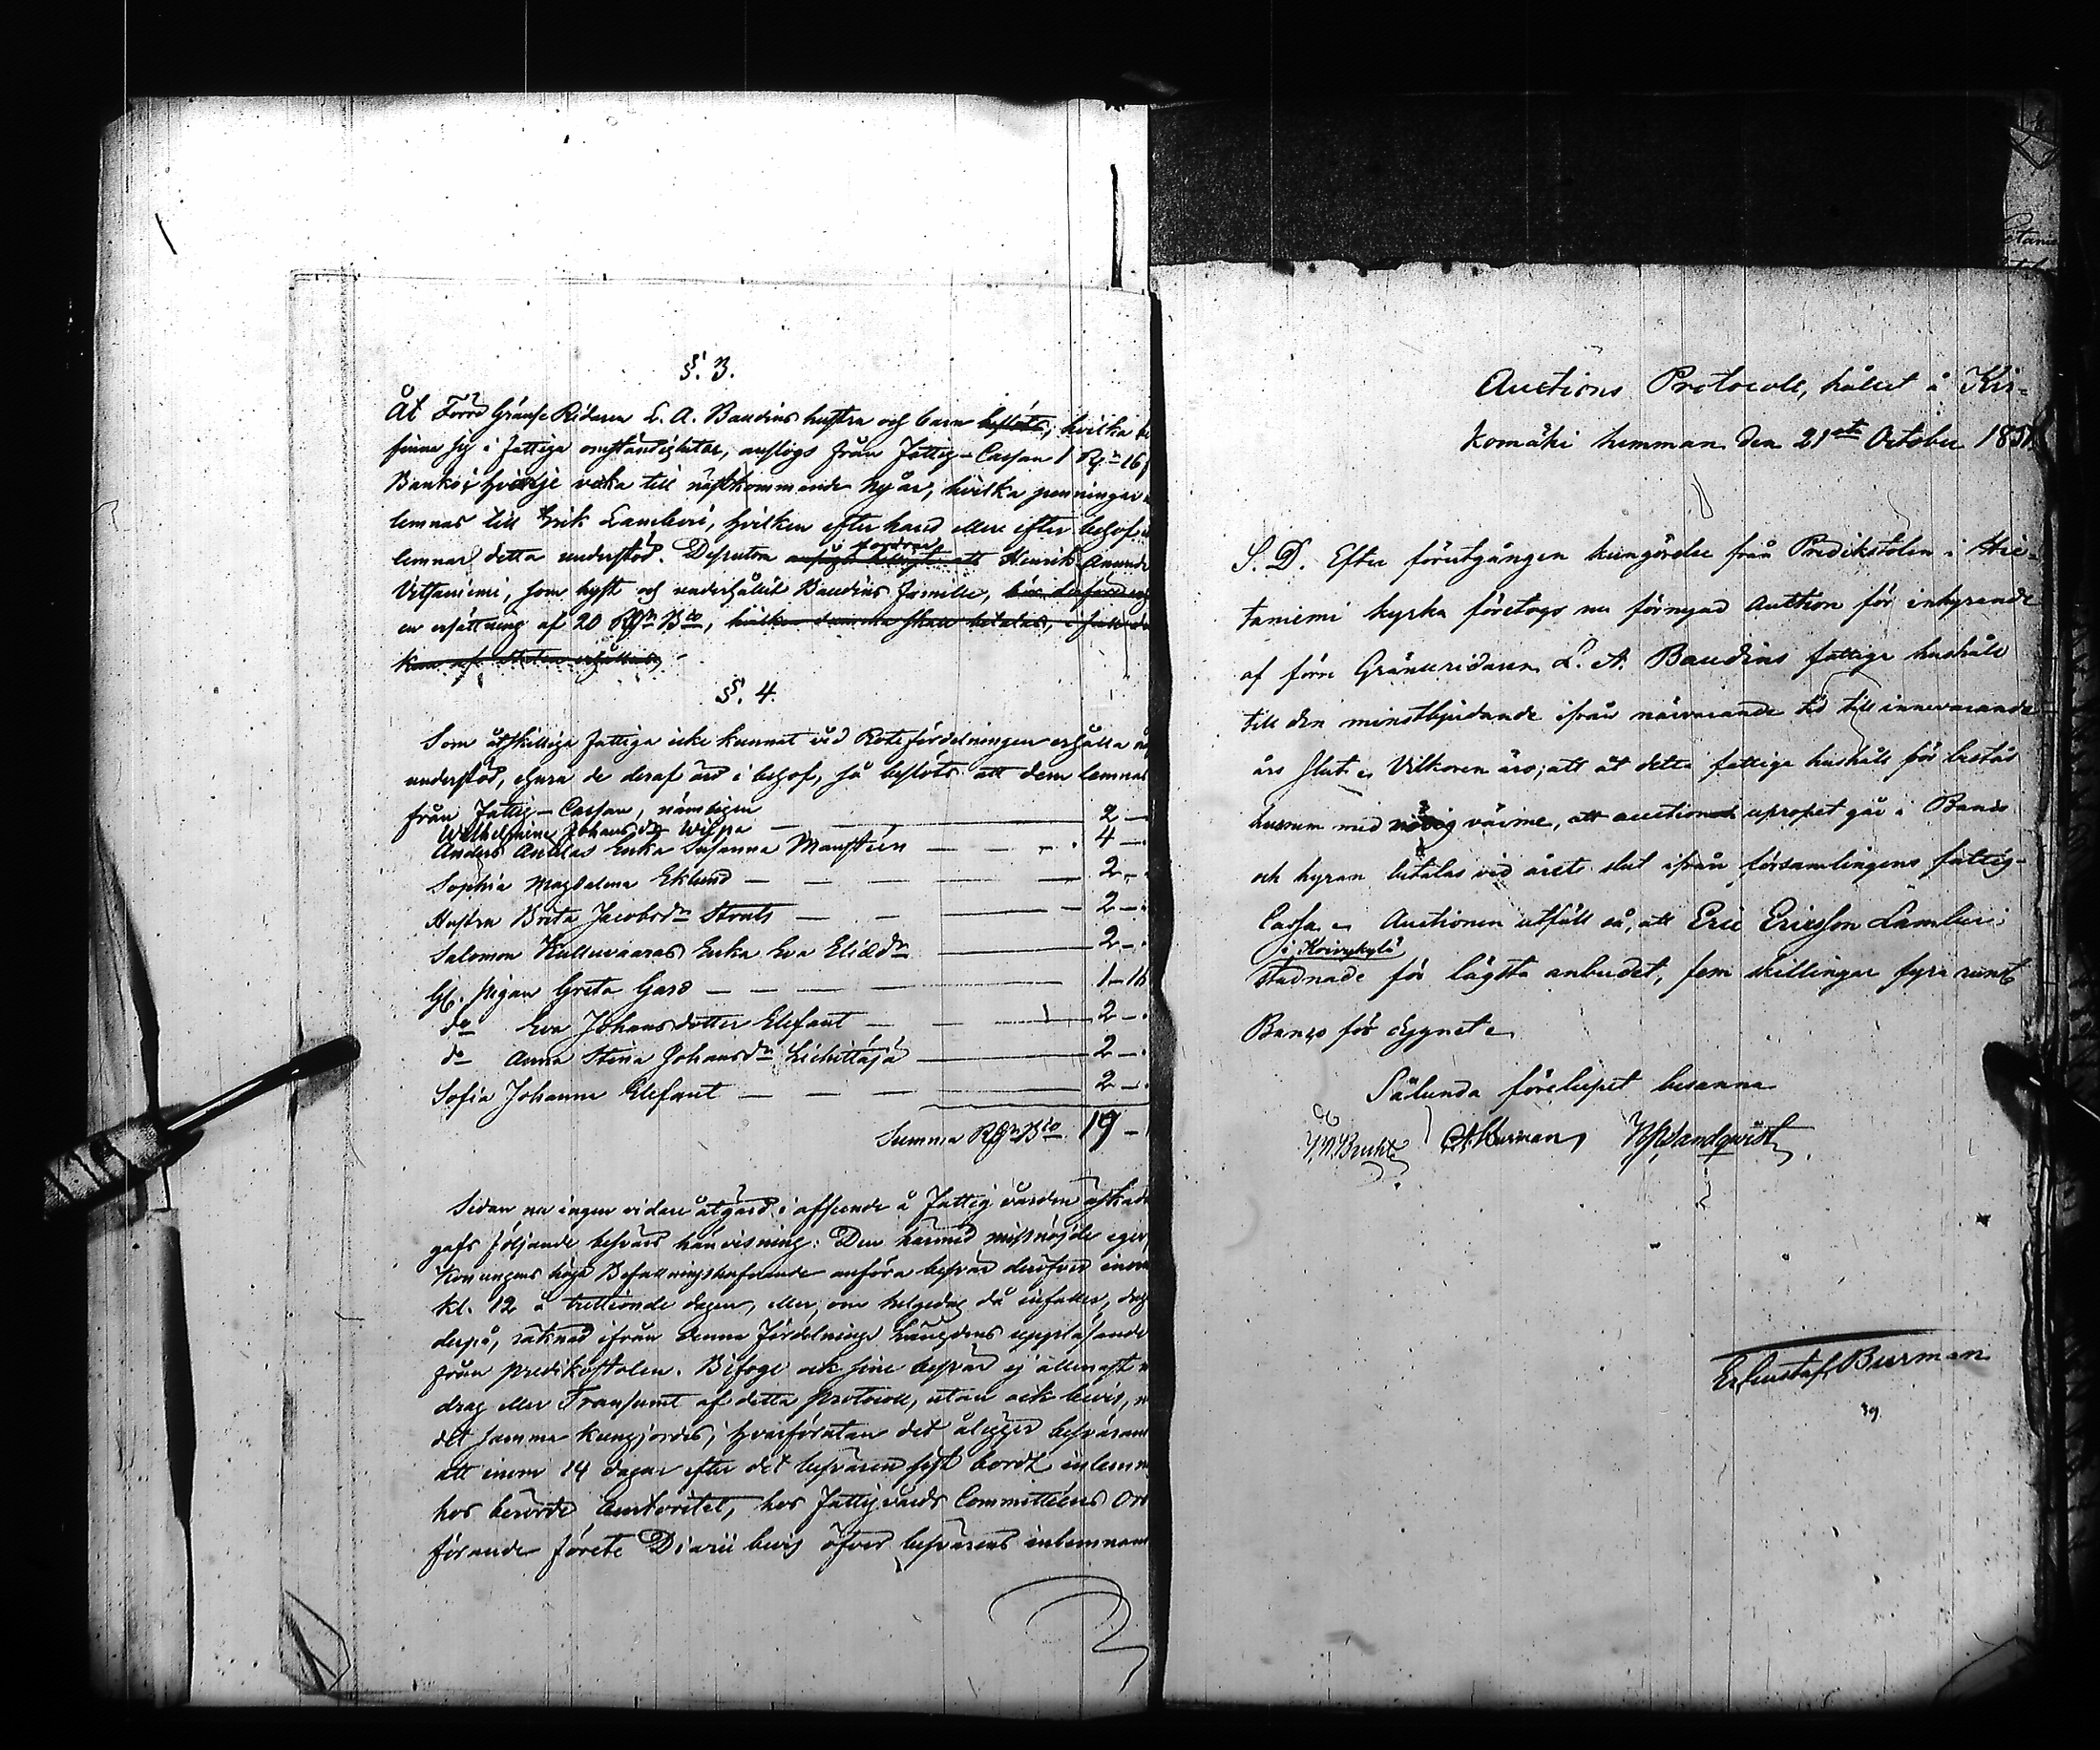 §. 3.
Åt Förre Gränse Ridaren L. A. Baudins hustru och barn beslöts, hvilka be
finna sig i fattiga omständigheter, anslogs från Fattig-Cassan 1 Rdr 16
Banko i hvarje vecka till nästkommande nyår, hvilka penningar
lemnas till Erik Lamberi, hvilken efter hand eller efter behof
lemnar detta understöd. Dessutom fordrar Henrik
Vitsaniemi, som hyst och underhållit Baudins familie,
en ersättning af 20 Rdr Bco, hvilken summa skall betalas, i fall
kan af Staten erhållas
§. 4.
Som åtskillige fattiga icke kunnat vid Rotefördelningen erhålla
understöd, ehuru de deraf äro i behof, så beslöts att dem lemnas
från Fattig-Cassan, nämligen
Wilhelmina Johansdr Wilpa — 2 —
Anders Anttilas Enka Susanna Manstén — 4 —
Sophia Magdalena Eklund — 2 —
Hustru Brita Jacobsdr Strals — 2 —
Salomon Kulluvaaras Enka Eva Eliædr — 2 —
Gl. Pigan Greta Gard — 1 — 16
do Eva Johansdotter Elefant — 2 —
do Anna Stina Johansdr — 2 —
Sofia Johanna Elefant — 2 —
Summa Rdr Bco 19 —
Sedan nu ingen vidare åtgärd i afseende å Fattigvården
gafs följande besvärs hänvisning: Den härmed missnöjde eger
Konungens höga Befallningshafvande anföra besvär deröfver inom
kl. 12 å trettionde dagen, eller, om helgedag då infaller, dag
derpå, räknad ifrån denna fördelnings längdens uppläsande
från predikostolen. Bifoge ock sine besvär ej allenast
drag eller Transumt af detta protocoll, utan ock bevis,
det samma kungjordes, hvarförutan det åligger
att inom 14 dagar efter det besvären sist bordt
hos berörde Auctoritet, hos Fattigvårds Committéens
förande förete Diarii bevis öfver besvärens
Auctions Protocoll, hållet å Kir-
komäki hemman den 21sta October 185
S. D. Efter förutgången kungörelse från Predikstolen i Hie-
taniemi kyrka företogs nu förnyad Auction för inhyrande
af förre Gränseridaren L. A. Baudins fattige hushåll
till den minstbjudande ifrån närvarande tid till innevarande
års slut. Vilkoren äro; att åt detta fattiga hushåll bör bestås
husrum med nödig värme, att auctions upropet går i Banco
och hyran betalas vid årets slut ifrån församlingens fattig-
Cassa. Auctionen utföll så, att Eric Ericsson Lamberi
i Koivukylä
stadnade för lägsta anbudet, fem skillingar fyra runst
Banco för dygnet.
Sålunda förelupet besanna
Er Gustaf Burman